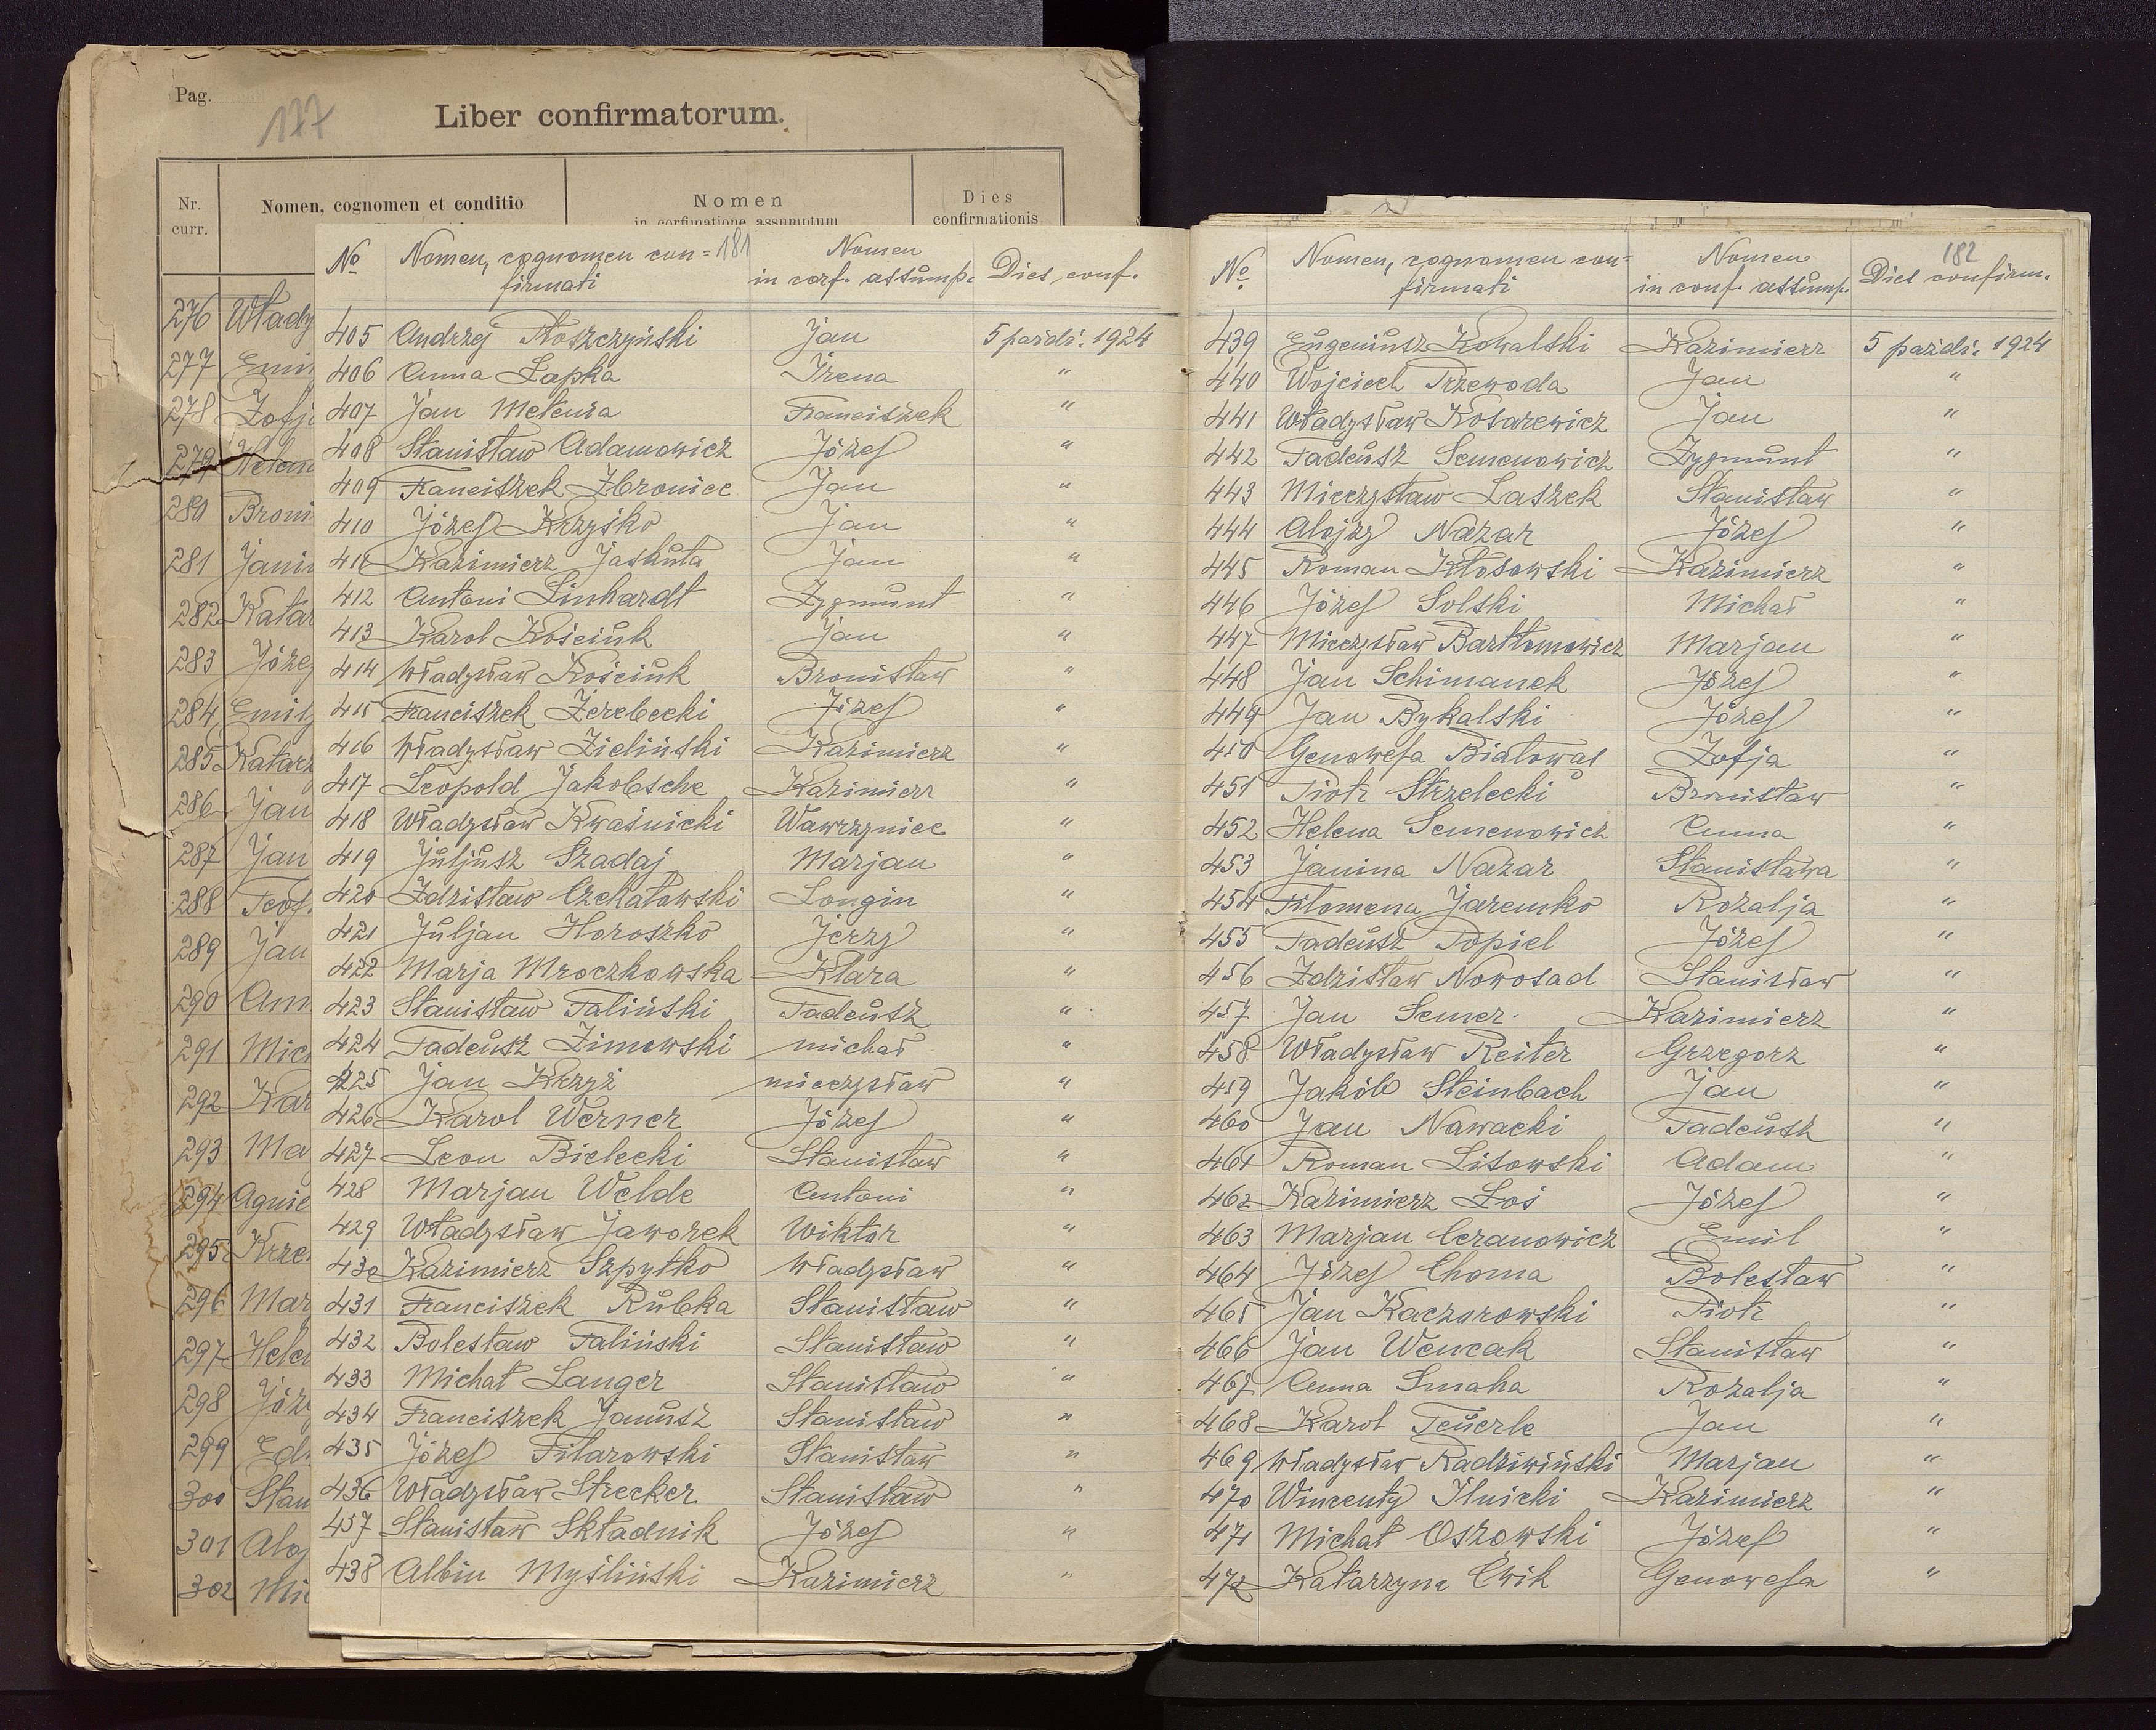 Pag.
177
Liber confirmatorum.
Nr. curr.
Nomen, cognomen et conditio
Nomen in confirmatione assumptum
Dies confirmationis
276 Włady
277 Emi
278 Zofj
279 Helen
280 Broni
281 Jani
282 Katar
283 Józe
284 Emil
285 Katarz
286 Jan
287 Jan
288 Teof.
289 Jan
290 Ann
291 Mic
292 Kar
293 Ma
294 Agnie
295 Krze
296 Mar
297 Hele
298 Józ
299 Ed
300 Stan
301 Aloj
302 Mi
181
No Nomen, cognomen con=firmati Nomen in conf. assump. Dies conf.
405 Andrzej Płoszczyński Jan 5 paźdź. 1924
406 Anna Łapka Irena "
407 Jan Metenia Franciszek "
408 Stanisław Adamowicz Józef "
409 Franciszek Zbroniec Jan "
410 Józef Krzyśko Jan "
411 Kazimierz Jaskuła Jan "
412 Antoni Linhardt Zygmunt "
413 Karol Kościuk Jan "
414 Władysław Kościuk Bronisław "
415 Franciszek Żerebecki Józef "
416 Władysław Zieliński Kazimierz "
417 Leopold Jakobsche Kazimierz "
418 Władysław Kwaśnicki Wawrzyniec "
419 Juljusz Szadaj Marjan "
420 Zdzisław Czehatowski Longin "
421 Juljan Horoszko Jerzy "
422 Marja Mroczkowska Klara "
423 Stanisław Faliński Tadeusz "
424 Tadeusz Zimowski Michał "
425 Jan Krzyż Mieczysław "
426 Karol Werner Józef "
427 Leon Bielecki Stanisław "
428 Marjan Welde Antoni "
429 Władysław Jaworek Wiktor "
430 Kazimierz Szpytko Władysław "
431 Franciszek Rubka Stanisław "
432 Bolesław Faliński Stanisław "
433 Michał Langer Stanisław "
434 Franciszek Janusz Stanisław "
435 Józef Filarowski Stanisław "
436 Władysław Strecker Stanisław "
437 Stanisław Składnik Józef "
438 Albin Myśliński Kazimierz "
182
No Nomen, cognomen con=firmati Nomen in conf. assump. Dies confirm.
439 Eugeniusz Kowalski Kazimierz 5 paźdź. 1924
440 Wojciech Przewoda Jan "
441 Władysław Kosarewicz Jan "
442 Tadeusz Semenowicz Zygmunt "
443 Mieczysław Laszek Stanisław "
444 Alojzy Nazar Józef "
445 Roman Kłosowski Kazimierz "
446 Józef Solski Michał "
447 Mieczysław Bartłomowicz Marjan "
448 Jan Schimanek Józef "
449 Jan Bykalski Józef "
450 Genowefa Białowąs Zofja "
451 Piotr Strzelecki Bronisław "
452 Helena Semenowicz Anna "
453 Janina Nazar Stanisława "
454 Filomena Jaremko Rozalja "
455 Tadeusz Popiel Józef "
456 Zdzisław Nowosad Stanisław "
457 Jan Semer Kazimierz "
458 Władysław Reiter Grzegorz "
459 Jakób Steinbach Jan "
460 Jan Nawacki Tadeusz "
461 Roman Lisowski Adam "
462 Kazimierz Łoś Józef "
463 Marjan Ceranowicz Emil "
464 Józef Choma Bolesław "
465 Jan Kaczorowski Piotr "
466 Jan Wencak Stanisław "
467 Anna Smaha Rozalja "
468 Karol Feuerle Jan "
469 Władysław Radziwiński Marjan "
470 Wincenty Ilnicki Kazimierz "
471 Michał Oszowski Józef "
472 Katarzyna Ćwik Genowefa "